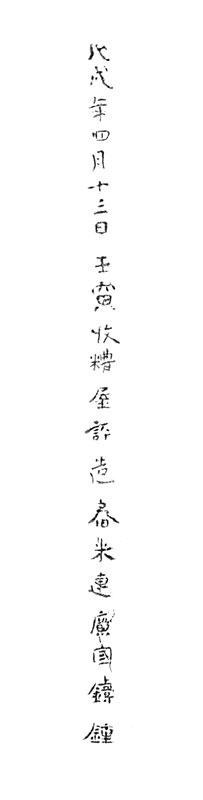 戊戌年四月十三日壬寅收糟屋評造舂米連廣國鑄鐘